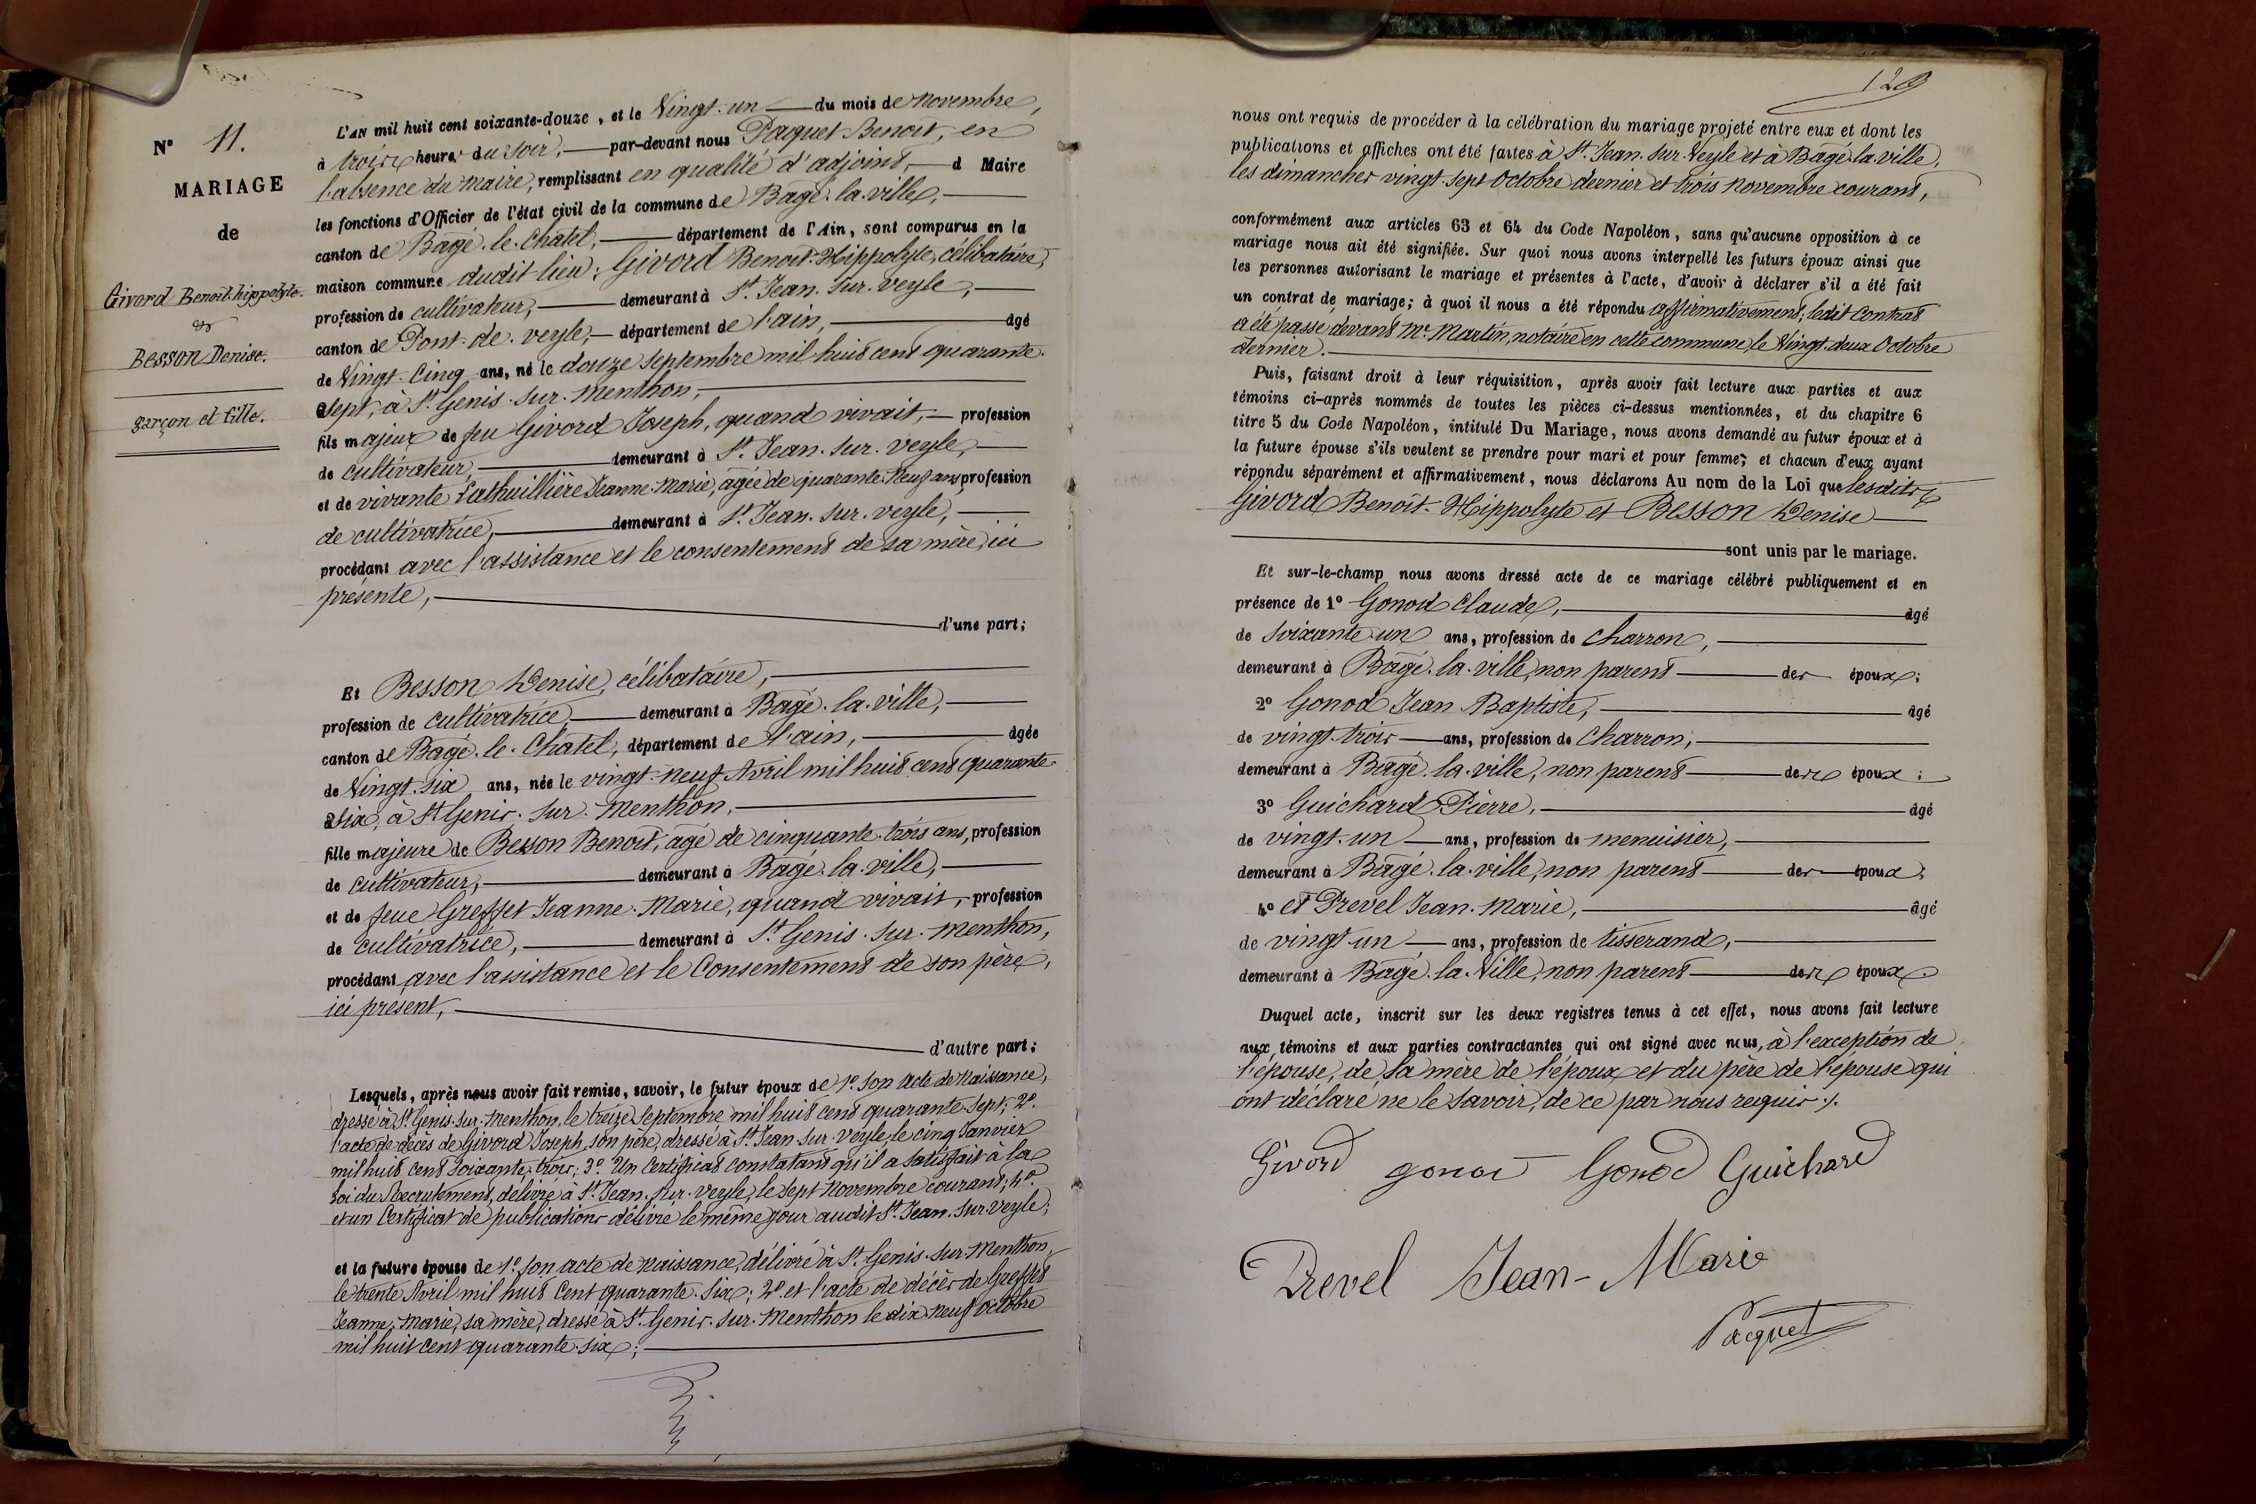 N° 11.
MARIAGE
de
Givord Benoit-hippolyte.
&
Besson Denise.
garçon et fille.
L'AN mil huit cent soixante-douze, et le Vingt-un du mois de novembre,
à trois heures du soir, par-devant nous Paquet Benoit, en
l'absence du maire, remplissant en qualité d'adjoint, d Maire
les fonctions d'Officier de l'état civil de la commune de Bagé-la-ville,
canton de Bagé-le-chatel, département de l'Ain, sont comparus en la
maison commune dudit lieu: Givord Benoit-Hippolyte, célibataire,
profession de cultivateur, demeurant à St Jean-sur-veyle,
canton de Pont-de-veyle, département de l'ain, âgé
de Vingt-Cinq ans, né le douze septembre mil huit cent quarante-
sept, à St Genis-sur-menthon,
fils majeur de feu Givord Joseph, quand vivait, profession
de cultivateur, demeurant à St Jean-sur-veyle,
et de vivante Lathuillière Jeanne-Marie, agée de quarante-neuf ans profession
de cultivatrice, demeurant à St Jean-sur-veyle,
procédant avec l'assistance et le consentement de sa mère, ici
présente,
d'une part;
Et Besson Denise, célibataire,
profession de cultivatrice, demeurant à Bagé-la-ville,
canton de Bagé-le-Châtel, département de l'ain, âgée
de Vingt-six ans, née le vingt-neuf Avril mil huit cent quarante-
six, à St Genis-sur-menthon,
fille majeure de Besson Benoit, agé de cinquante-trois ans, profession
de cultivateur, demeurant à Bagé-la-ville,
et de feue Greffet Jeanne-Marie, quand vivait, profession
de cultivatrice, demeurant à St Genis-sur-menthon,
procédant avec l'assistance et le Consentement de son père,
ici présent,
d'autre part;
Lesquels, après nous avoir fait remise, savoir, le futur époux de 1° son acte de naissance,
dressé à St Genis-sur-menthon, le treize septembre mil huit cent quarante-sept; 2°
l'acte de décès de Givord Joseph, son père, dressé à St Jean-sur-veyle, le cinq Janvier
mil huit cent soixante-trois; 3° Un Certificat constatant qu'il a satisfait à la
loi du Recrutement, délivré à St Jean-sur-veyle, le sept novembre courant; 4°
et un Certificat de publications délivré le même jour audit St Jean-sur-veyle;
et la future épouse de 1° son acte de naissance, délivré à St Genis-sur-Menthon
le trente Avril mil huit Cent quarante-six; 2° et l'acte de décès de Greffet
Jeanne-marie, sa mère, dressé à St Genis-sur-menthon le dix-neuf octobre
mil huit cent quarante-six;
129
nous ont requis de procéder à la célébration du mariage projeté entre eux et dont les
publications et affiches ont été faites à St Jean-sur-Veyle et à Bagé-la-ville,
les dimanches vingt-sept Octobre dernier et trois novembre courant,
conformément aux articles 63 et 64 du Code Napoléon, sans qu'aucune opposition à ce
mariage nous ait été signifiée. Sur quoi nous avons interpellé les futurs époux ainsi que
les personnes autorisant le mariage et présentes à l'acte, d'avoir à déclarer s'il a été fait
un contrat de mariage; à quoi il nous a été répondu affirmativement; ledit contrat
a été passé devant Me Martin, notaire en cette commune, le Vingt-deux Octobre
dernier.
Puis, faisant droit à leur réquisition, après avoir fait lecture aux parties et aux
témoins ci-après nommés de toutes les pièces ci-dessus mentionnées, et du chapitre 6
titre 5 du Code Napoléon, intitulé Du Mariage, nous avons demandé au futur époux et à
la future épouse s'ils veulent se prendre pour mari et pour femme; et chacun d'eux ayant
répondu séparément et affirmativement, nous déclarons Au nom de la Loi que lesdits
Givord Benoît-Hippolyte et Besson Denise
sont unis par le mariage.
Et sur-le-champ nous avons dressé acte de ce mariage célébré publiquement et en
présence de 1° Gonod Claude, âgé
de soixante-un ans, profession de charron,
demeurant à Bagé-la-ville, non parent des époux;
2° Gonod Jean-Baptiste, âgé
de vingt-trois ans, profession de charron,
demeurant à Bagé-la-ville, non parent des époux;
3° Guichard Pierre, âgé
de vingt-un ans, profession de menuisier,
demeurant à Bagé-la-ville, non parent des époux;
4° et Prevel Jean-Marie, âgé
de vingt-un ans, profession de tisserand,
demeurant à Bagé-la-Ville, non parent des époux.
Duquel acte, inscrit sur les deux registres tenus à cet effet, nous avons fait lecture
aux témoins et aux parties contractantes qui ont signé avec nous, à l'exception de
l'épouse, de la mère de l'époux et du père de l'épouse qui
ont déclaré ne le savoir, de ce par nous requis ./.
Givord gonod Gonod Guichard
Prevel Jean-Marie
Pacquet